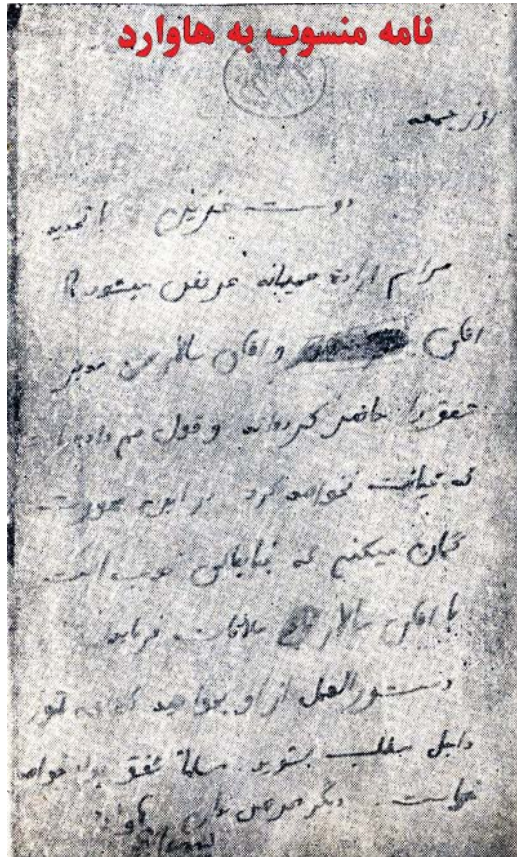 نامه منسوب به هاوارد
روز جمعه
دوست عزیزم
مراسم ارادت صمیمانه عرض میشود
آقای و آقای سالار من مدیر
شفق را حاضر کرده‌اند و قول هم داده است
که خیانت نخواهد کرد در این صورت
گمان میکنم که جنابعالی خوب است
با آقای سالار ملاقات فرمایید
دستورالعمل از او بخواهید که چه طور
داخل مطلب بشوید. مسلماً شفق پول خواهد
خواست. دیگر عرضی ندارم هاوارد